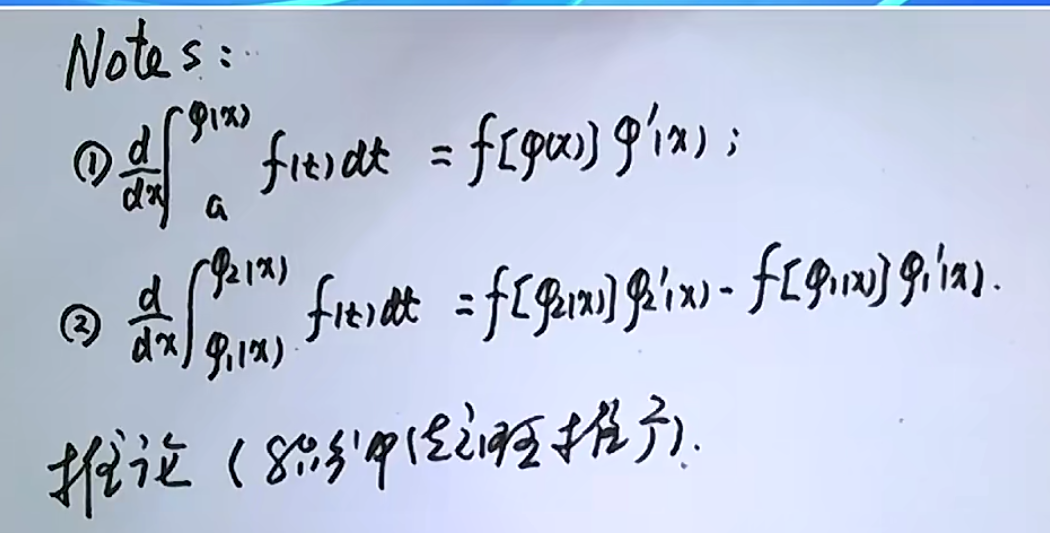 Notes:
① d/dx ∫_a^φ(x) f(t)dt = f[φ(x)]φ'(x);
② d/dx ∫_φ₁(x)^φ₂(x) f(t)dt = f[φ₂(x)]φ₂'(x) - f[φ₁(x)]φ₁'(x).
推论(积分中值定理推广).